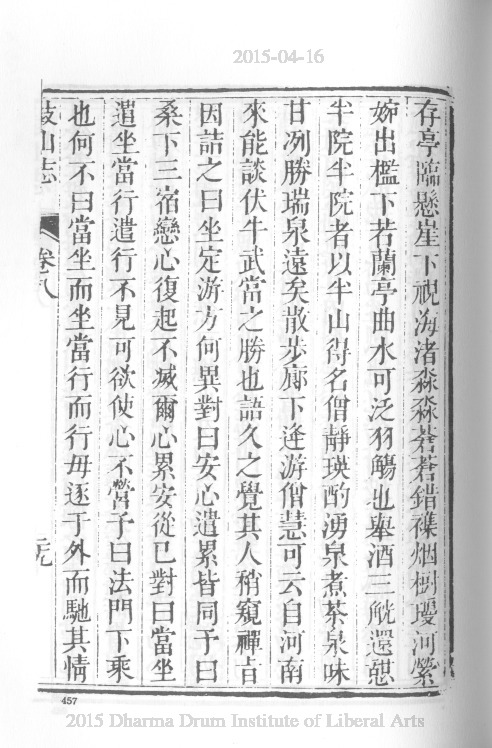 2015-04-16
存亭臨懸崖下視海渚淼淼蒼蒼錯襍烟樹瓊河縈
婉出檻下若蘭亭曲水可泛羽觴也舉酒三觥還憇
半院半院者以半山得名僧靜瑛酌湧泉煮茶泉味
甘冽勝瑞泉遠矣散步廊下逢游僧慧可云自河南
來能談伏牛武當之勝也語久之覺其人稍窺禪旨
因詰之曰坐定游方何異對曰安心遣累皆同予曰
桑下三宿戀心復起不滅爾心累安從已對曰當坐
遣坐當行遣行不見可欲使心不營予曰法門下乘
也何不曰當坐而坐當行而行毋逐于外而馳其情
鼓山志
卷八
二九
457
2015 Dharma Drum Institute of Liberal Arts